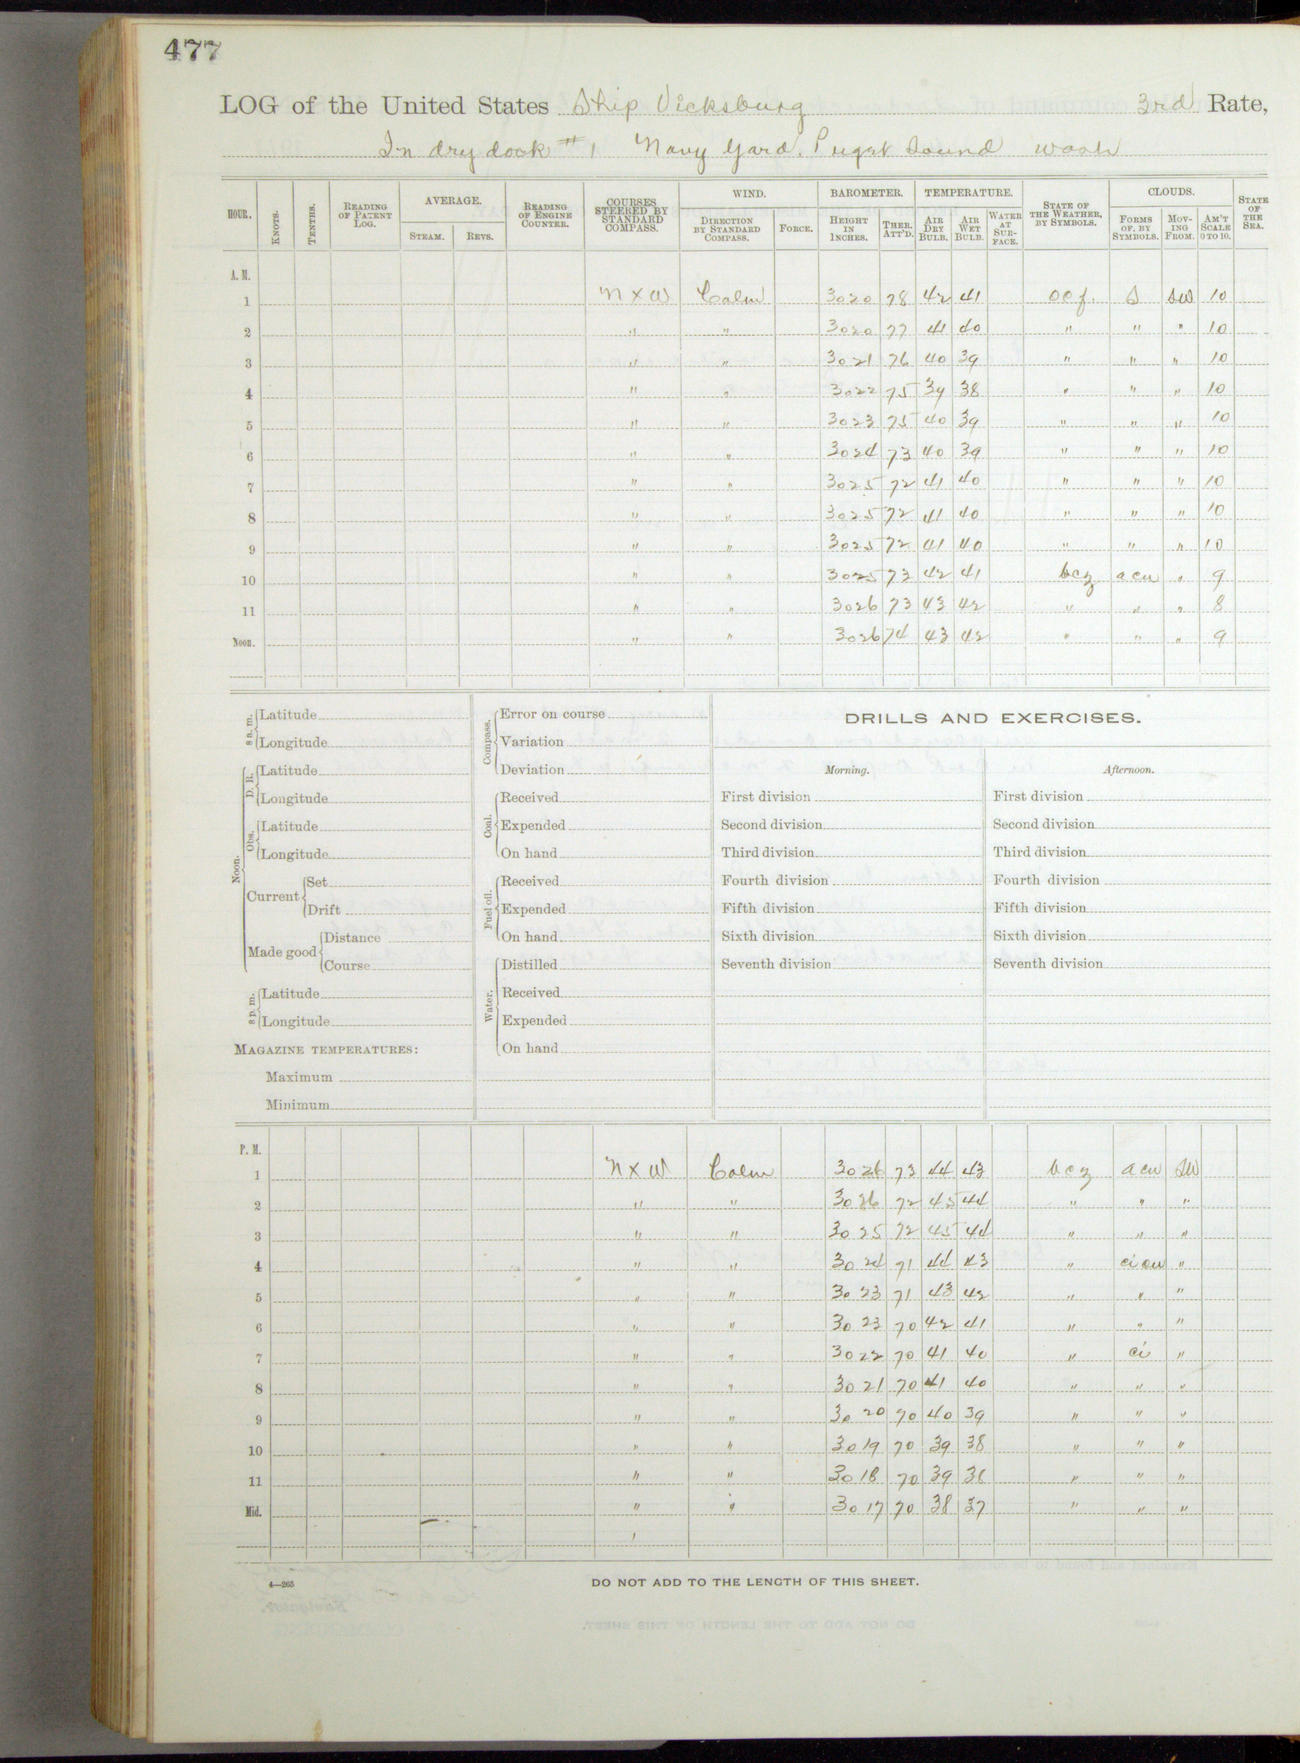 477
LOG of the United States Ship Vicksburg 3rd Rate,
In dry dock #1 Navy Yard. Puget Sound Wash
HOUR. KNOTS. TENTHS. READING OF PATENT LOG. AVERAGE. STEAM. REVS. READING OF ENGINE COUNTER. COURSES STEERED BY STANDARD COMPASS. WIND. DIRECTION BY STANDARD COMPASS. FORCE. BAROMETER. HEIGHT IN INCHES. THER. ATT'D. TEMPERATURE. AIR DRY BULB. AIR WET BULB. WATER AT SURFACE. STATE OF THE WEATHER, BY SYMBOLS. CLOUDS. FORMS OF, BY SYMBOLS. MOVING FROM. AM'T SCALE 0 TO 10. STATE OF THE SEA.
A. M.
1 N x W Calm 3020 78 42 41 ocf. S SW 10
2 " " 3020 77 41 40 " " " 10
3 " " 3021 76 40 39 " " " 10
4 " " 3022 75 39 38 " " " 10
5 " " 3023 75 40 39 " " " 10
6 " " 3024 73 40 39 " " " 10
7 " " 3025 72 41 40 " " " 10
8 " " 3025 72 41 40 " " " 10
9 " " 3025 72 41 40 " " " 10
10 " " 3025 73 42 41 bcz acu " 9
11 " " 3026 73 43 42 " " " 8
Noon. " " 3026 74 43 42 " " " 9
8 a. m. Latitude
Longitude
Noon. D. R. Latitude
Longitude
Obs. Latitude
Longitude
Current Set
Drift
Made good Distance
Course
8 p. m. Latitude
Longitude
MAGAZINE TEMPERATURES:
Maximum
Minimum
Compass. Error on course
Variation
Deviation
Coal. Received
Expended
On hand
Fuel oil. Received
Expended
On hand
Water. Distilled
Received
Expended
On hand
DRILLS AND EXERCISES.
Morning. Afternoon.
First division First division
Second division Second division
Third division Third division
Fourth division Fourth division
Fifth division Fifth division
Sixth division Sixth division
Seventh division Seventh division
P. M.
1 N x W Calm 3026 73 44 43 bcz acu SW
2 " " 3026 72 45 44 " " "
3 " " 3025 72 45 44 " " "
4 " " 3024 71 44 43 " cicu "
5 " " 3023 71 43 42 " " "
6 " " 3023 70 42 41 " " "
7 " " 3022 70 41 40 " ci "
8 " " 3021 70 41 40 " " "
9 " " 3020 70 40 39 " " "
10 " " 3019 70 39 38 " " "
11 " " 3018 70 39 38 " " "
Mid. " " 3017 70 38 37 " " "
4—265 DO NOT ADD TO THE LENGTH OF THIS SHEET.